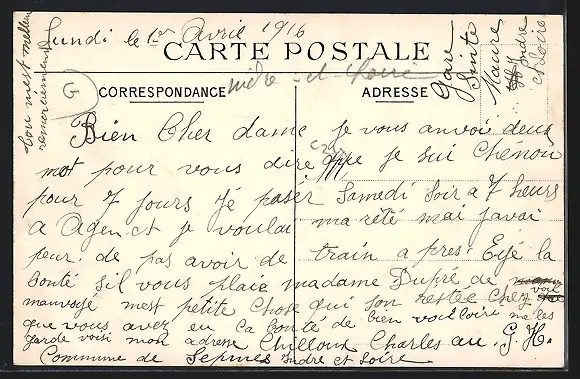 Lundi le 1er Avril 1916
CARTE POSTALE
CORRESPONDANCE
ADRESSE
Gare
Sainte
Maure
Indre
et Loire
Bien Cher dame je vous anvoi deux
mot pour vous dire que je sui Chénou
pour 7 jours Jé paser Samedi Soir a 7 heurs
a Agen et je voulai ma rété mai javai
peur de pas avoir de train a pres. Eyé la
bonté sil vous plaie madame Dupré de
voir
mauvoyé mest petite Chose qui son restée Chez
que vous avez eu Ca bonté de bien voiloire me les
garde voisi mon adresse Chilloux Charles au G. H.
Commune de Sepmes indre et Loire
Tou mest melleur
remerciement